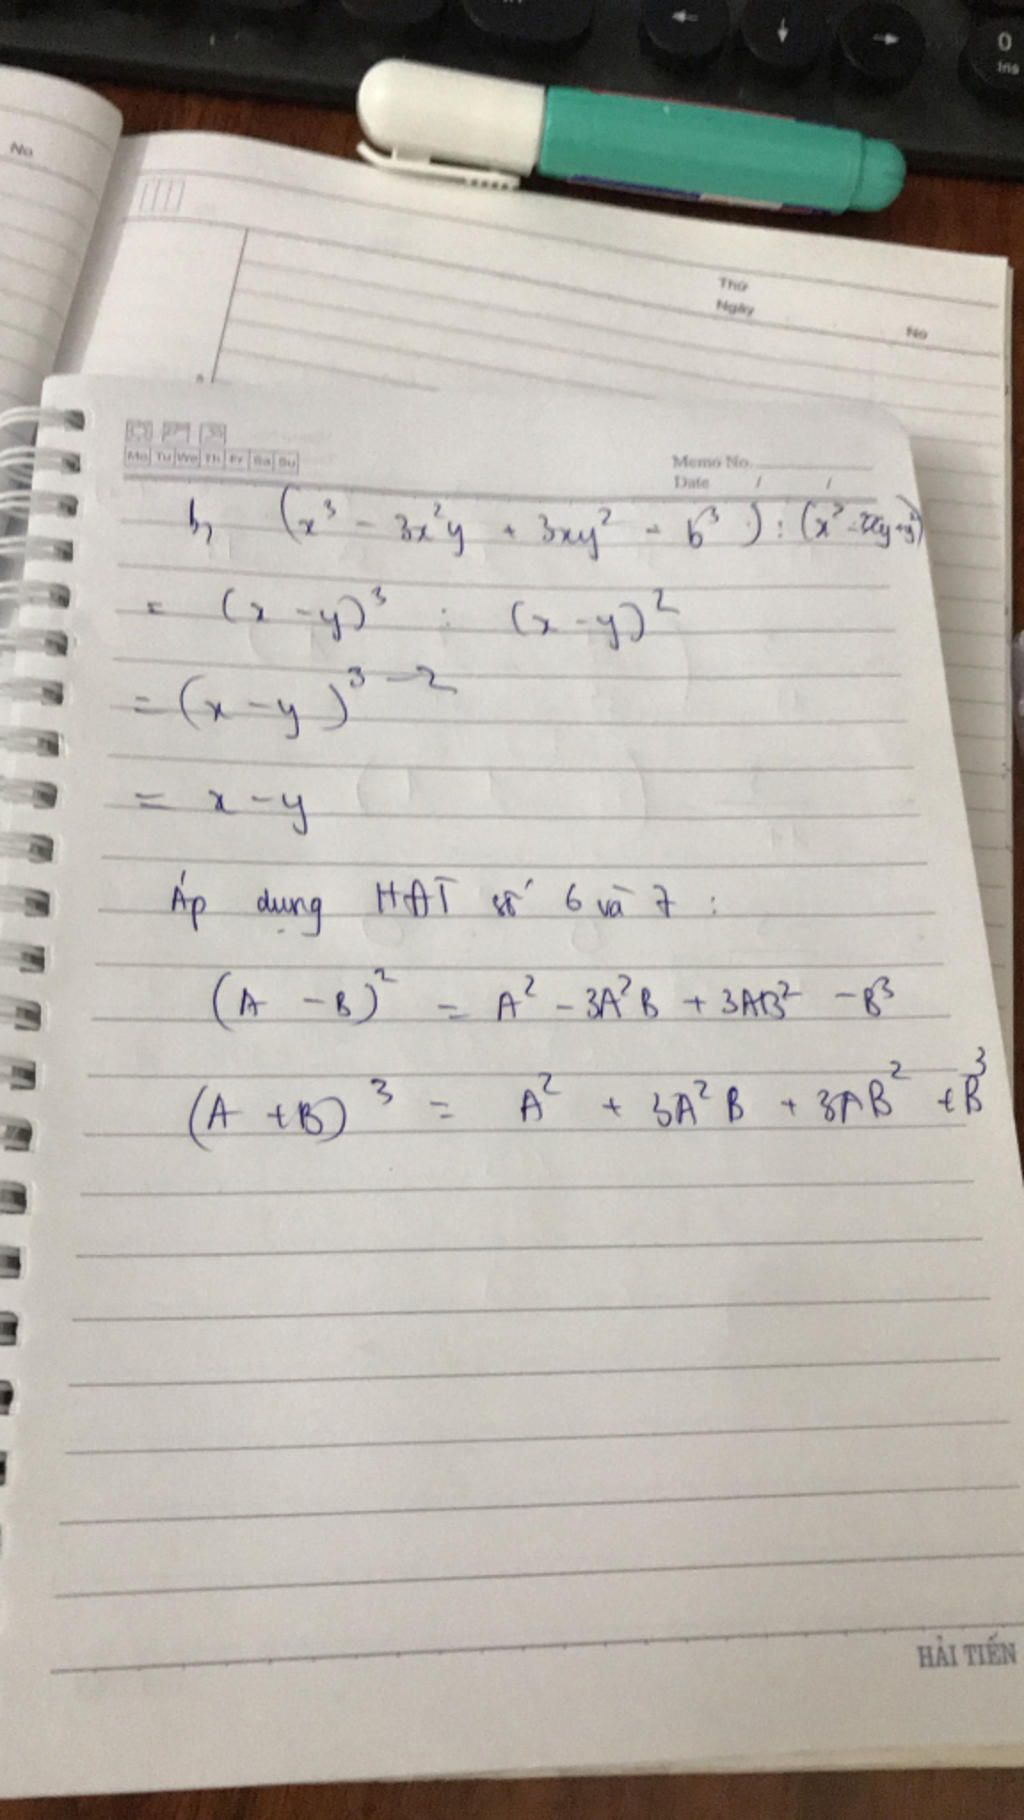 0
Ins
No
Thứ
Ngày
No
Mo Tu We Th Fr Sa Su
Memo No.
Date / /
b, (x³ - 3x²y + 3xy² - b³) : (x² - 2xy + y²)
= (x - y)³ : (x - y)²
= (x - y)³⁻²
= x - y
Áp dụng HĐT số 6 và 7 :
(A - B)² = A² - 3A²B + 3AB² - B³
(A + B)³ = A² + 3A²B + 3AB² + B³
HẢI TIẾN